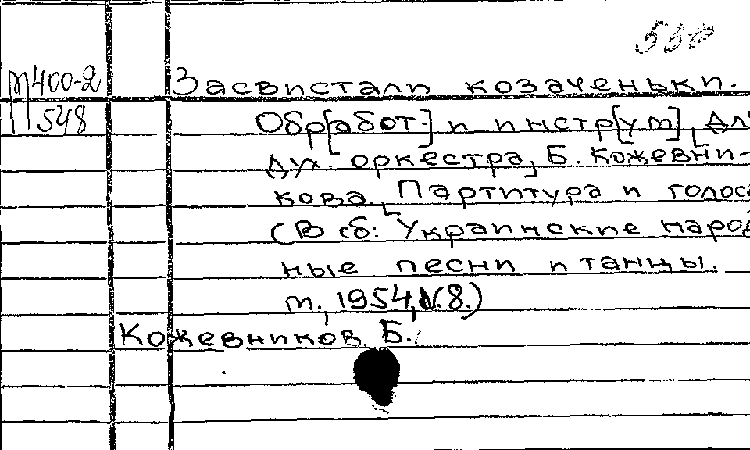 500
М400-2
548
Засвистали козаченьки.
Обр[абот] и инстр[ум], для
дух. оркестра, Б. Кожевни-
кова. Партитура и голоса
(В сб: Украинские народ
ные песни и танцы.
м., 1954, №8.)
Кожевников Б.